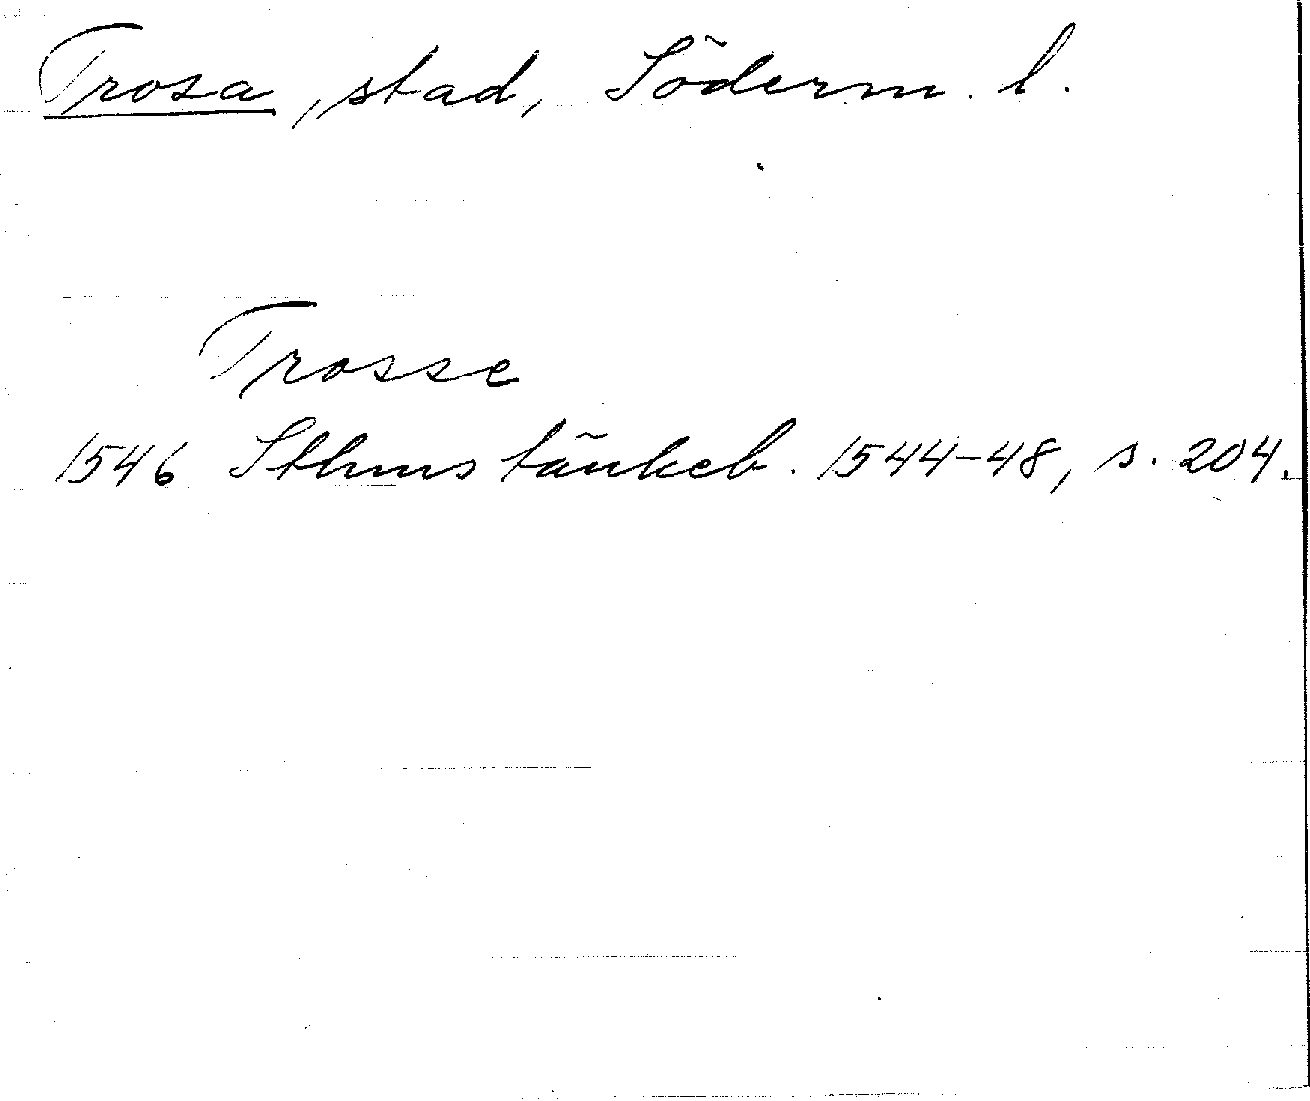 Trosa, stad, Söderm. l.
Trosse
1546 Sthms tänkeb. 1544-48, s. 204.